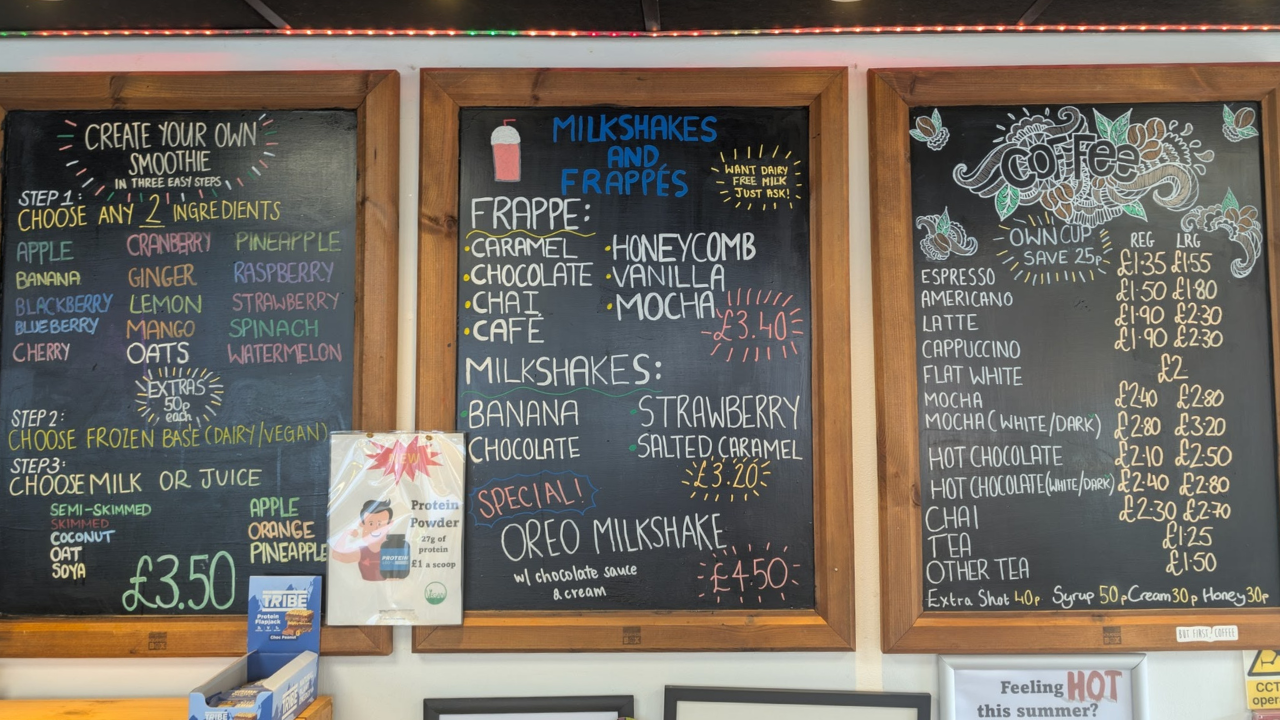 CREATE YOUR OWN
SMOOTHIE
IN THREE EASY STEPS
STEP 1:
CHOOSE ANY 2 INGREDIENTS
APPLE CRANBERRY PINEAPPLE
BANANA GINGER RASPBERRY
BLACKBERRY LEMON STRAWBERRY
BLUEBERRY MANGO SPINACH
CHERRY OATS WATERMELON
EXTRAS
50p
each
STEP 2:
CHOOSE FROZEN BASE (DAIRY/VEGAN)
STEP3:
CHOOSE MILK OR JUICE
SEMI-SKIMMED APPLE
SKIMMED ORANGE
COCONUT PINEAPPLE
OAT
SOYA
£3.50
NEW
Protein
Powder
27g of
protein
£1 a scoop
PROTEIN
TRIBE
Protein
Flapjack
Choc Peanut
TRIBE
MILKSHAKES
AND
FRAPPÉS
WANT DAIRY
FREE MILK
- JUST ASK!
FRAPPE:
CARAMEL HONEYCOMB
CHOCOLATE VANILLA
CHAI MOCHA
CAFÉ £3.40
MILKSHAKES:
BANANA STRAWBERRY
CHOCOLATE SALTED CARAMEL
£3.20
SPECIAL!
OREO MILKSHAKE
w/ chocolate sauce
& cream
£4.50
COFFEE
OWN CUP
SAVE 25p
REG LRG
ESPRESSO £1·35 £1·55
AMERICANO £1·50 £1·80
LATTE £1·90 £2·30
CAPPUCCINO £1·90 £2·30
FLAT WHITE £2
MOCHA £2·40 £2·80
MOCHA (WHITE/DARK) £2·80 £3·20
HOT CHOCOLATE £2·10 £2·50
HOT CHOCOLATE (WHITE/DARK) £2·40 £2·80
CHAI £2·30 £2·70
TEA £1·25
OTHER TEA £1·50
Extra Shot 40p Syrup 50p Cream 30p Honey 30p
BUT FIRST, COFFEE
Feeling HOT
this summer?
CCT
oper